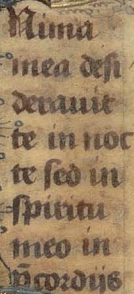 Nima
mea desi
derauit
te in noc
te sed in
spititu
meo in
p̄cordijs